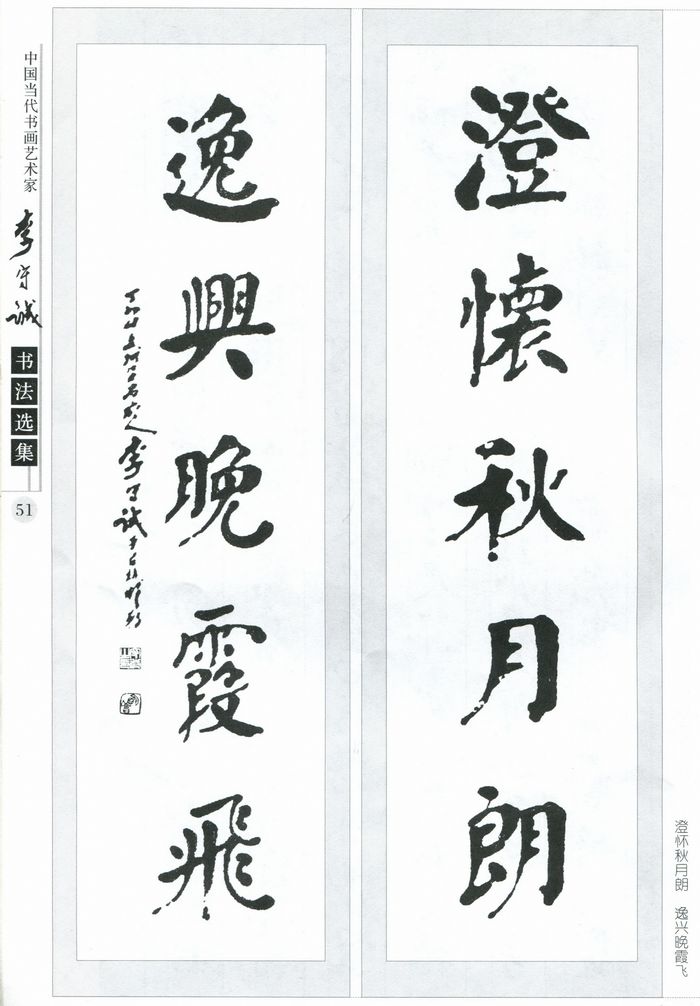 澄懷秋月朗
逸興晚霞飛
中国当代书画艺术家
李守诚
书法选集
51
澄怀秋月朗 逸兴晚霞飞